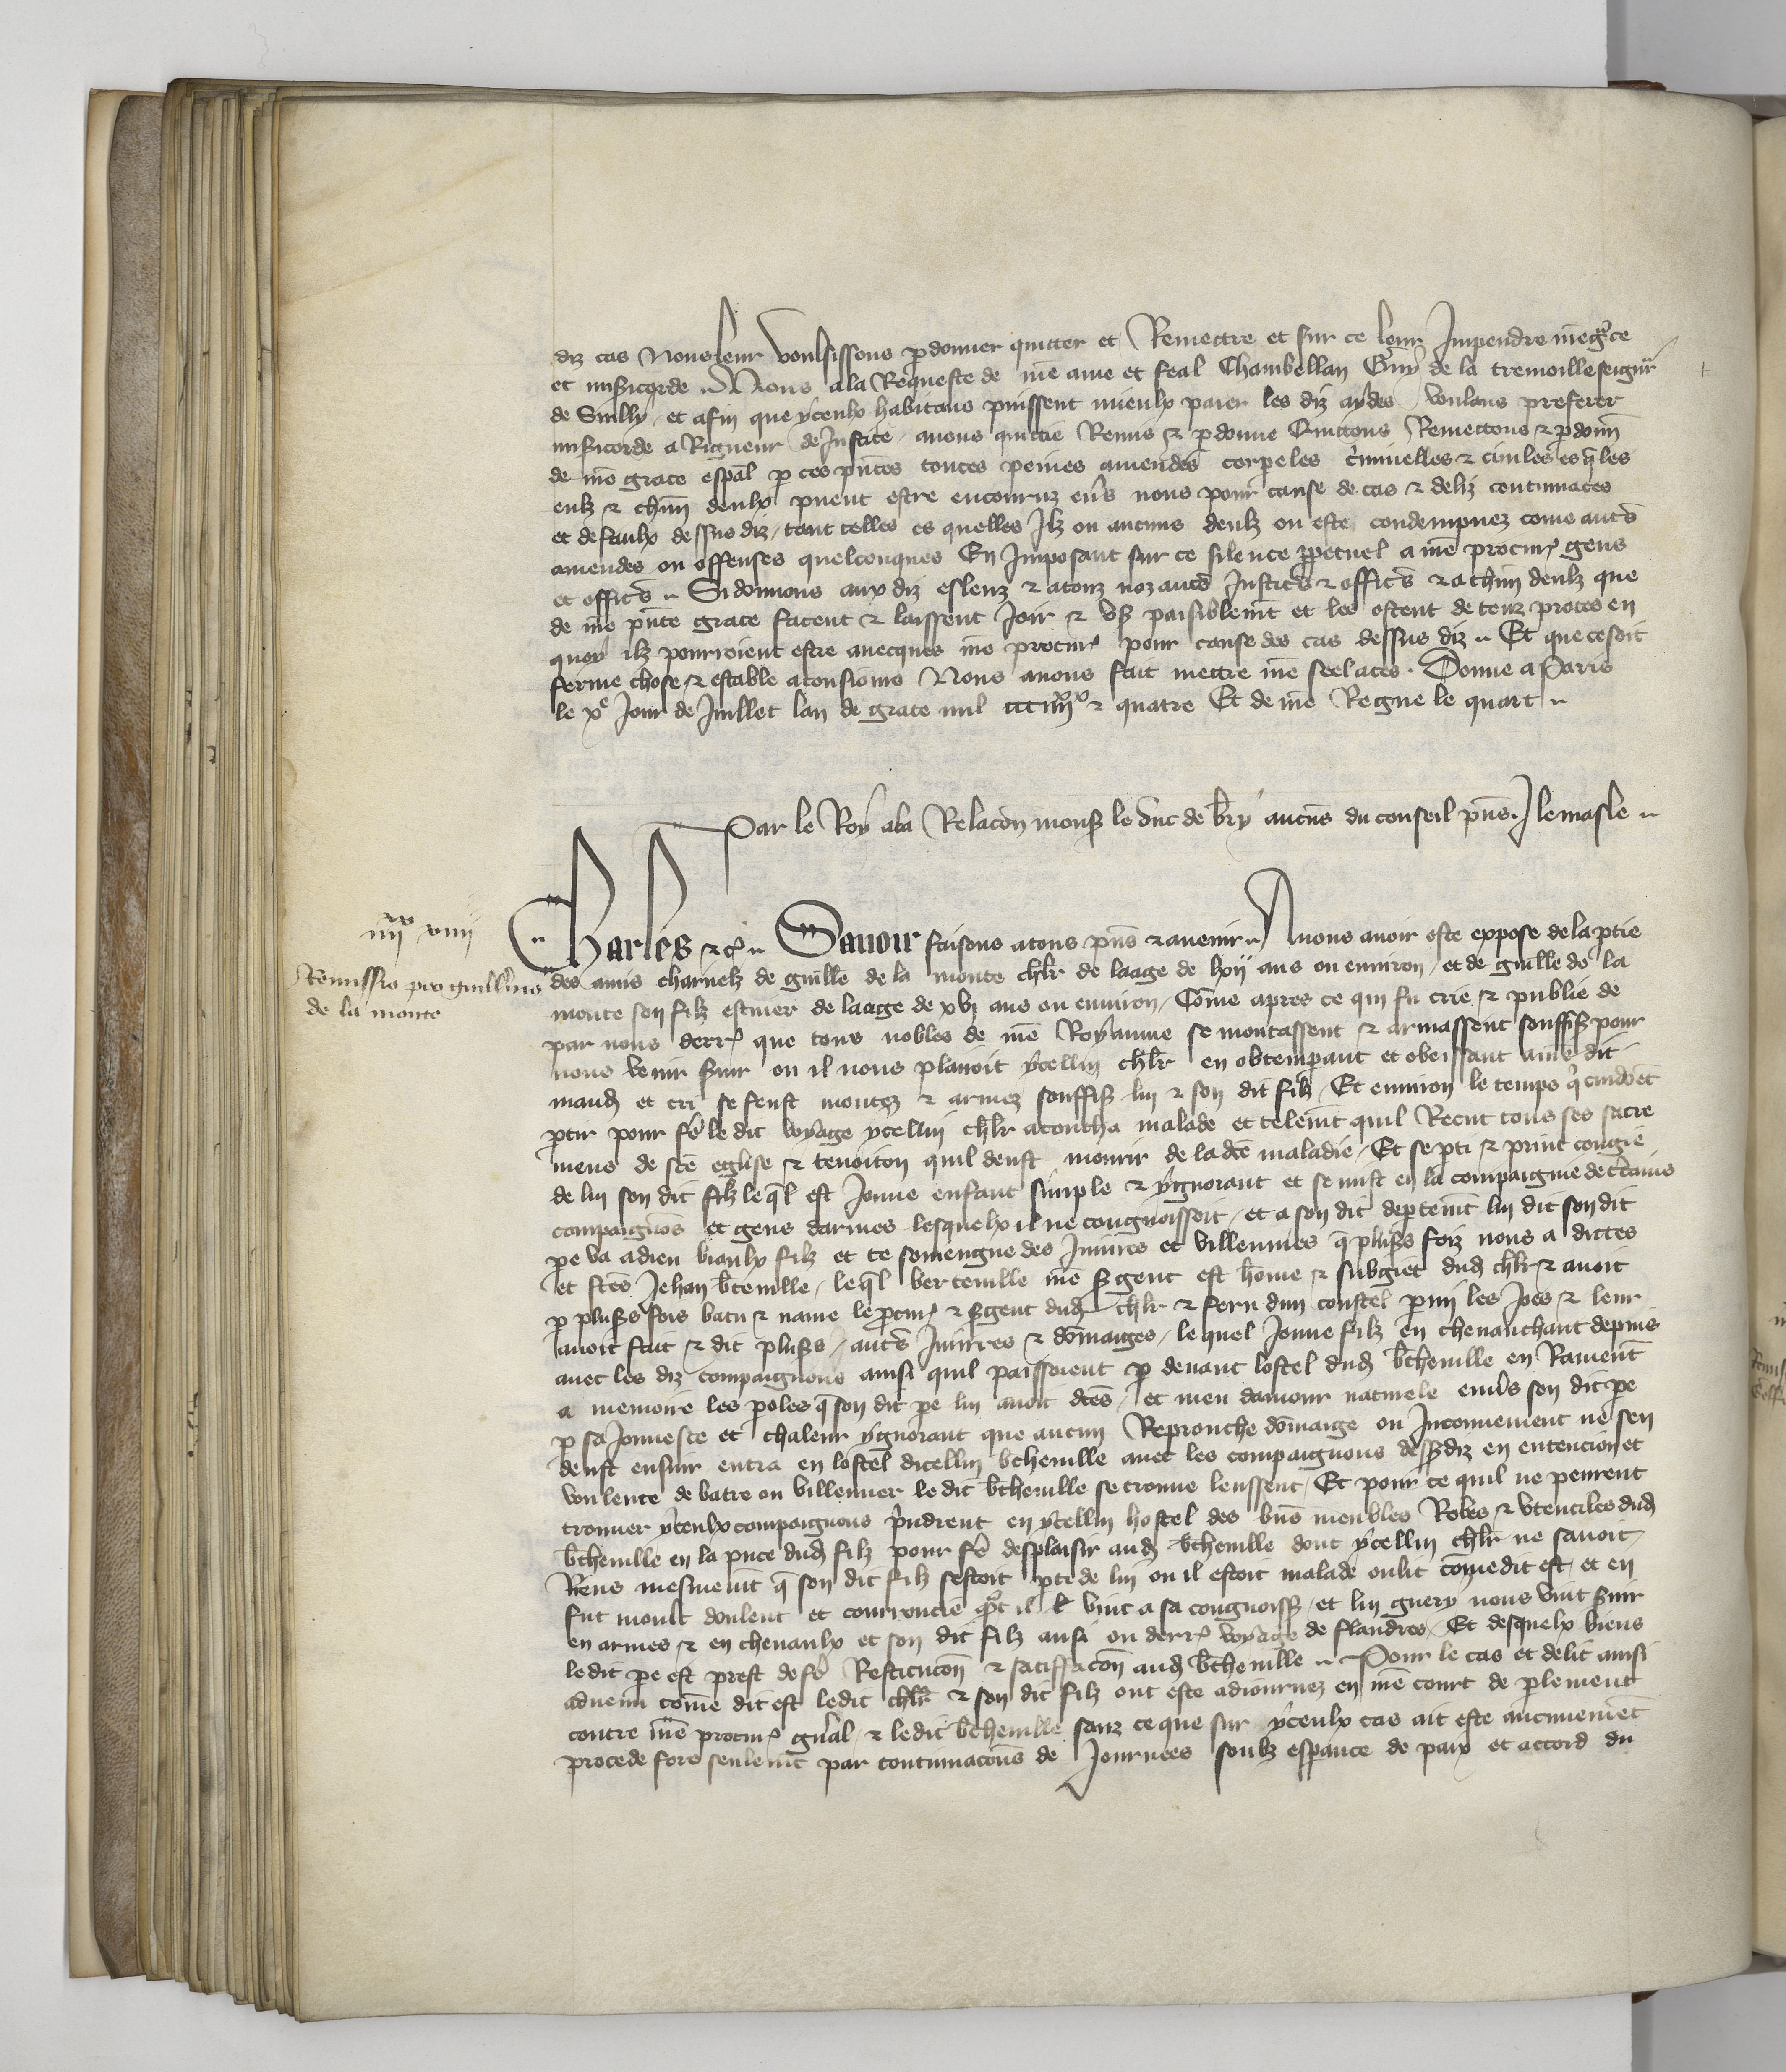 diz cas Nous leur voulsissons pdonner quitter et Remettre et sur ce leur Impendre nre grace
et misicorde .. Nous a la Requeste de nre ame et feal Chambellan Guy de la tremoille seigneur
de Suilly, et afin que yceulx habitans puissent mieulx paier les diz aydes, voulans preferer
misicorde a Rigueur de Justice, avons quittie Remis & pdonne Quittons Remettons & pdonnons
de nre grace espal p ces pntes toutes peines amendes corpeles criminelles & civiles es qles
eulz & chun deulx puent estre encouruz envs nous pour cause de cas & deliz contumaces
et defaulx dessus diz, tout celles es quelles Ilz ou aucuns deulz ou este condempnez come autres
amendes ou offenses quelconques En Imposant sur ce silence ppetuel a nre procur gens
et offics .. Si donnons aux diz esleuz & a touz noz autres Justics & offics & a chun deulz que
de nre pnte grace facent & laissent Joir & us paisiblemt et les ostent de touz proces en
quoy ilz pourroient estre avecques nre procur pour cause des cas dessus diz .. Et que ce soit
ferme chose & estable a tousjoms Nous avons fait mettre nre seel a ces. Donne a Paris
le xe Jour de Juillet lan de grace mil ccc iiiixx & quatre Et de nre Regne le quart ..
Par le Roy a la Relacon mons le duc de bry aucuns du conseil pns. J lemasle ..
iiiixx xviii
Charles &c .. Savoir faisons a tous pns & avenir .. Avons avoir este expose de la ptie
Remissio pro guillmo
de la monte
des amis charnelz de guille de la monte chlr de laage de lxii ans ou environ, et de guille de la
monte son filz escuier de laage de xvi ans ou environ, Come apres ce qui fu crie & publie de
par nous derr que tous nobles de nre Royaume se montassent & armassent souffis pour
nous venir svir ou il nous plairoit ycellui chlr en obtempant et obeissant a nre dit
mand et cri se feust montez & armez souffis lui & son dit filz, Et environ le temps q cuidoiet
ptir pour fe le dit voyage ycellui chlr acoucha malade et telemt quil Recut tous ses sacre
mens de sce eglise & tenoit on quil deust mourir de la dce maladie, Et se pti & print congie
de lui son dit filz leql est Jeune enfant simple & ygnorant et se mist en la compaignie de ctains
compaignons et gens darmes lesquelx il ne congnoissoit, et a son dit deptemt lui dit son dit
pe va adieu biaulx filz et te souviengne des Injures et villennies q pluss foiz nous a dictes
et fces Jehan bteville, leql berteville nre sgent est home & subgiet dud chlr & avoit
p pluss fois batu & navre le procur & sgent dud chlr & feru dun coustel pmi les Joes & leur
avoit fait & dit pluss autres Injures & domaiges, lequel Jeune filz en chevauchant depuis
avec les diz compaignons ainsi quil passoient p devant lostel dud bthenille en Ramenant
a memoire les poles q son dit pe lui avoit dces, et meu damour naturele envs son dit pe
p sa Jeunesce et chaleur ygnorant que aucun Reprouche domaige ou Inconvenient ne sen
deust ensuir entra en lostel dicellui bthenille avec les compaignons dessusdiz en entencion et
voulente de batre ou villenner le dit bthenille se trouve leussent, Et pour ce quil ne peurent
trouver yceulx compaignons prindrent en ycellui hostel des bns meubles Robes & utenciles dud
bthenille en la pnce dud filz pour fe desplaisir aud bthenille dont ycellui chlr ne savoit
Riens mesmemt q son dit filz sestoit pti de lui ou il estoit malade ou lit come dit est, et en
fut moult doulent et courroucie qnt il vint a sa congnoiss, et lui guery nous vint svir
en armes & en chevaulx et son dit filz ausi ou derr voyage de flandres, Et desquelx biens
le dit pe est prest de fe Restitucon & satiffacon aud bthenille .. Pour le cas et delit ainsi
advenu come dit est ledit chlr & son dit filz ont este adjournez en nre court de plement
contre nre procur gnal, & ledit bthenille sanz ce que sur yceulx cas ait este aucunemet
procede fors seulemt par contumacons de Journees soubz espance de paix et accord du